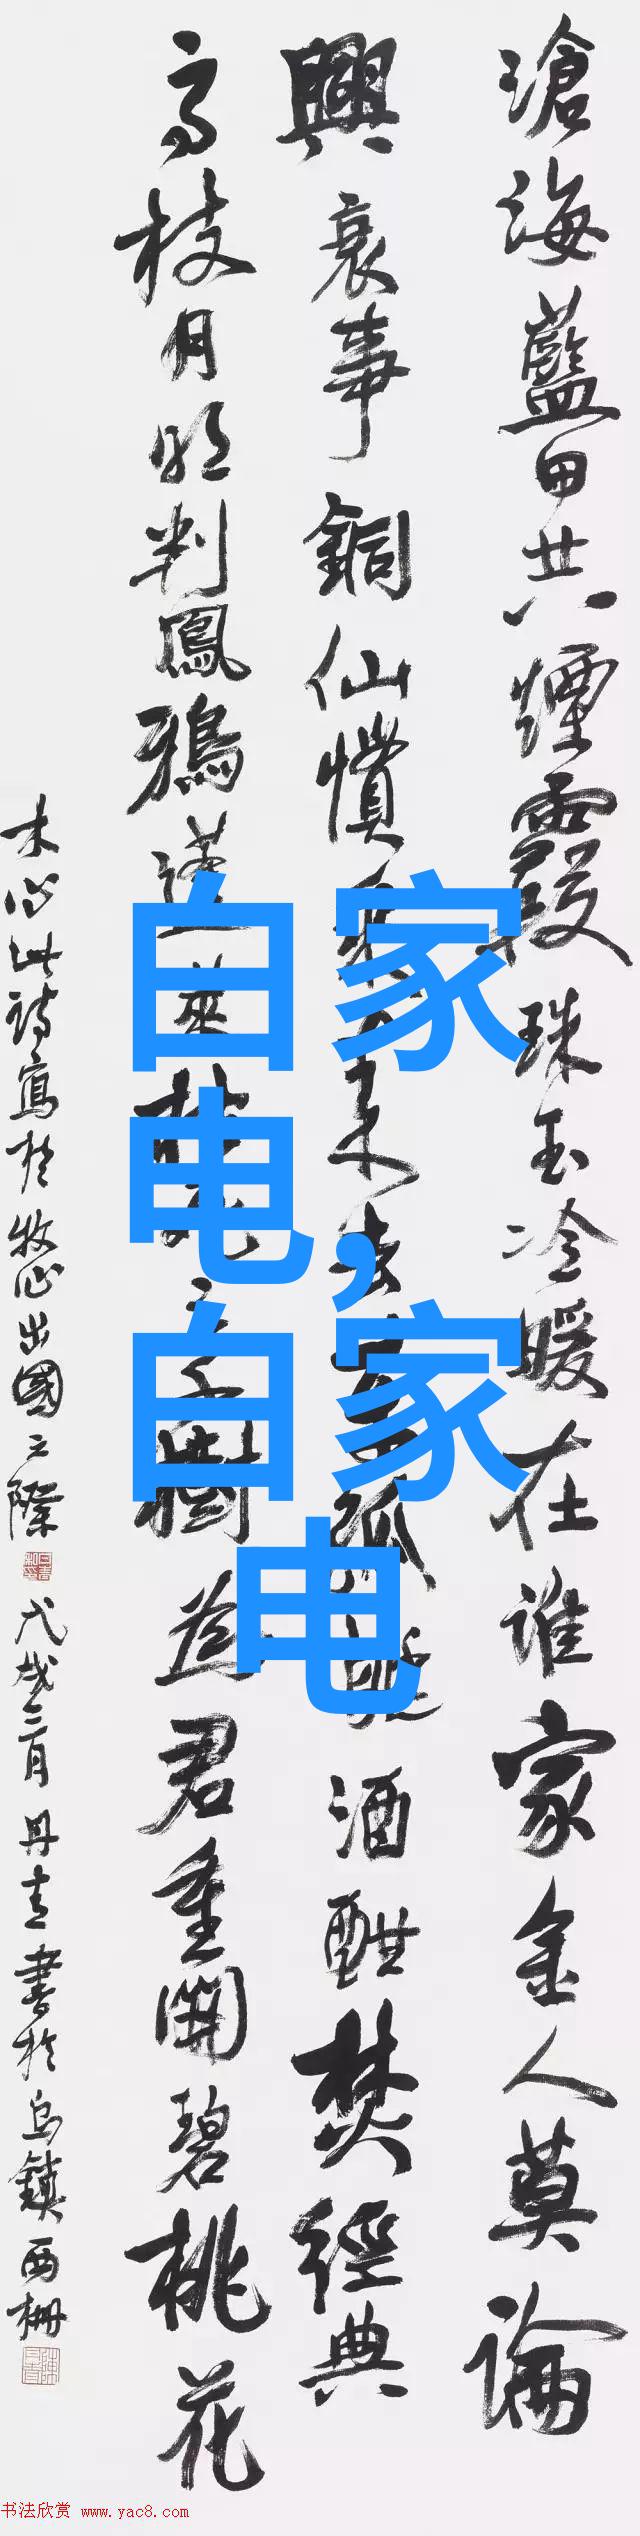 滄海藍田共煙霞珠玉冷暖在谁家金人莫論
興衰事銅仙慣乘来去酒酣焚經典
高枝月明判鳳鴉蓬萊樹為君重開碧桃花
木心此詩寫於牧心出國之際
戊戌三月丹青書於烏鎮西柵
白家
电,
白家
电
书法欣赏 www.yac8.com